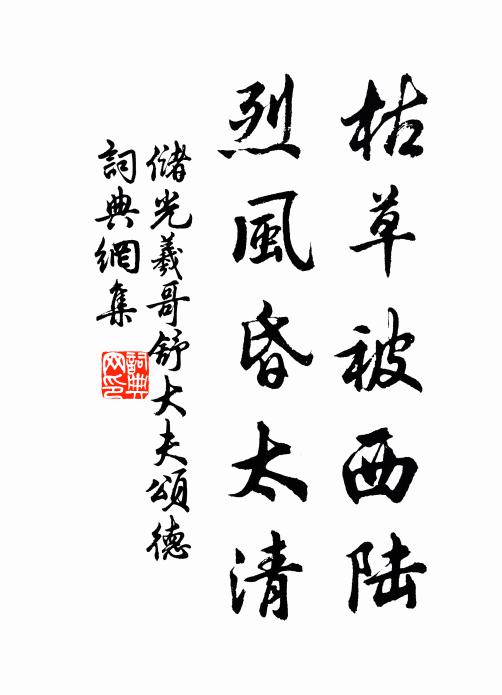 枯草被西陆
烈風昏太清
儲光羲哥舒大夫頌德
詞典網集
詞典网印